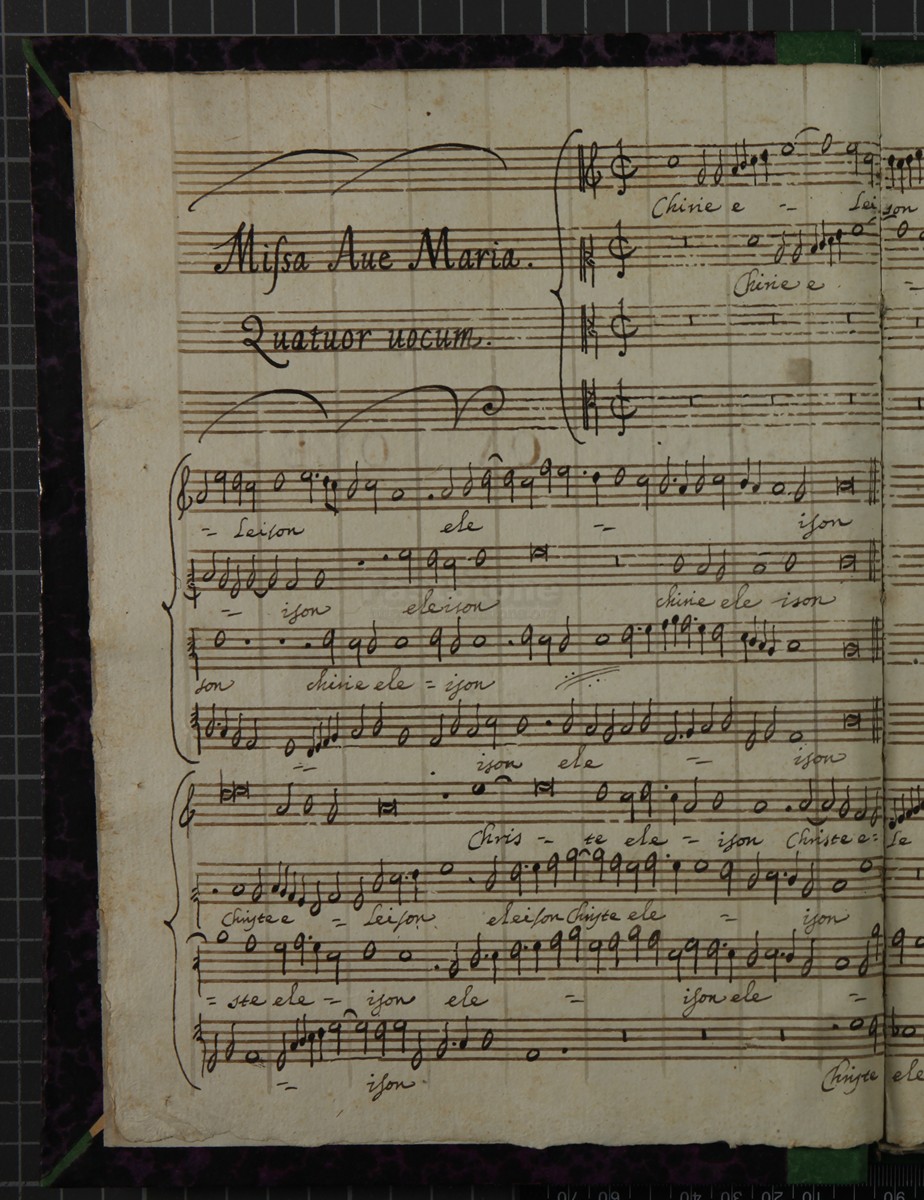 Chirie e -- Lei son
Missa Aue Maria.
Chirie e =
Quatuor uocum.
= Leison ele -- ison
= ison eleison chirie ele ison
son chirie ele = ison
= ison ele -- ison
Chris -- te ele - ison Christe e= Le
Christe e = Leison eleison Christe ele = ison
= ste ele = ison ele = ison ele =
= ison. Christe ele